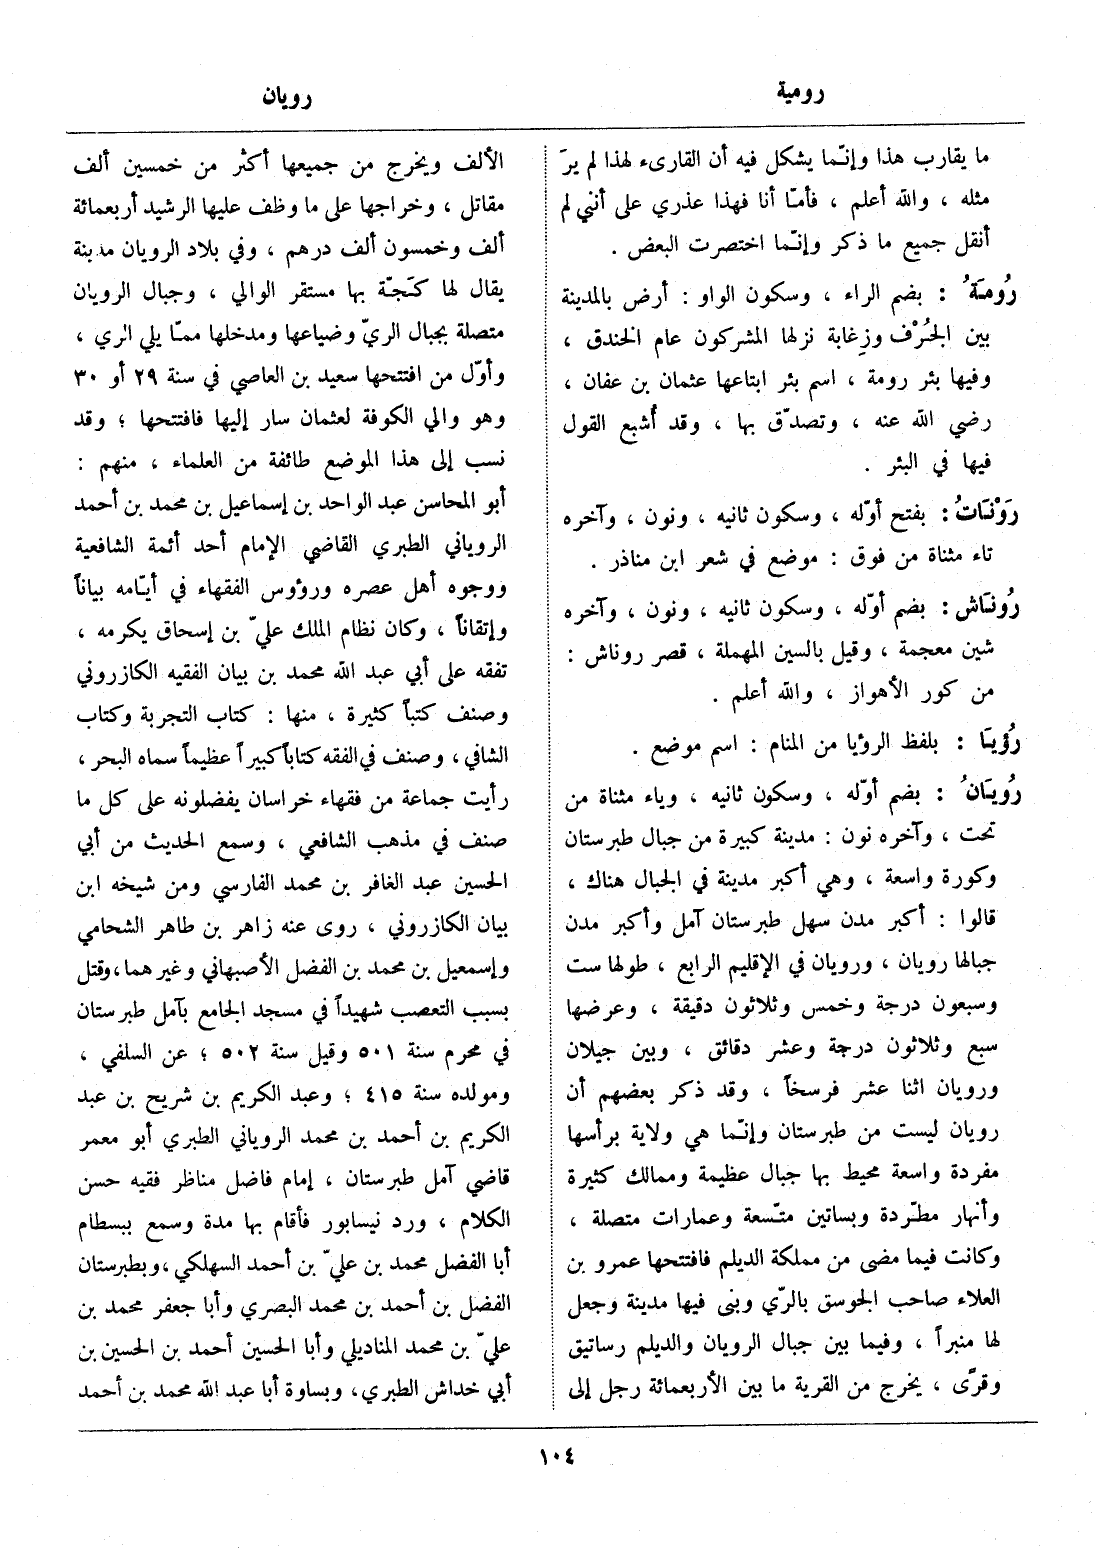 رومية
رويان
ما يقارب هذا وإنّما يشكل فيه أن القارىء لهذا لم يرَ
مثله ، والله أعلم ، فأمّا أنا فهذا عذري على أنني لم
أنقل جميع ما ذكر وإنّما اختصرت البعض .
رُومَةُ : بضم الراء ، وسكون الواو : أرض بالمدينة
بين الجُرْف وزِغابة نزلها المشركون عام الخندق ،
وفيها بئر رومة ، اسم بئر ابتاعها عثمان بن عفان ،
رضي الله عنه ، وتصدّق بها ، وقد أُشبع القول
فيها في البئر .
رَوْنَاتُ : بفتح أوّله ، وسكون ثانيه ، ونون ، وآخره
تاء مثناة من فوق : موضع في شعر ابن مناذر .
رُونَاش : بضم أوّله ، وسكون ثانيه ، ونون ، وآخره
شين معجمة ، وقيل بالسين المهملة ، قصر روناش :
من كور الأهواز ، والله أعلم .
رُؤيَا : بلفظ الرؤيا من المنام : اسم موضع .
رُويَانُ : بضم أوّله ، وسكون ثانيه ، وياء مثناة من
تحت ، وآخره نون : مدينة كبيرة من جبال طبرستان
وكورة واسعة ، وهي أكبر مدينة في الجبال هناك ،
قالوا : أكبر مدن سهل طبرستان آمل وأكبر مدن
جبالها رويان ، ورويان في الإقليم الرابع ، طولها ست
وسبعون درجة وخمس وثلاثون دقيقة ، وعرضها
سبع وثلاثون درجة وعشر دقائق ، وبين جيلان
ورويان اثنا عشر فرسخاً ، وقد ذكر بعضهم أن
رويان ليست من طبرستان وإنّما هي ولاية برأسها
مفردة واسعة محيط بها جبال عظيمة وممالك كثيرة
وأنهار مطّردة وبساتين متّسعة وعمارات متصلة ،
وكانت فيما مضى من مملكة الديلم فافتتحها عمرو بن
العلاء صاحب الجوسق بالرّي وبنى فيها مدينة وجعل
لها منبراً ، وفيما بين جبال الرويان والديلم رساتيق
وقرًى ، يخرج من القرية ما بين الأربعمائة رجل إلى
الألف ويخرج من جميعها أكثر من خمسين ألف
مقاتل ، وخراجها على ما وظف عليها الرشيد أربعمائة
ألف وخمسون ألف درهم ، وفي بلاد الرويان مدينة
يقال لها كَجّة بها مستقر الوالي ، وجبال الرويان
متصلة بجبال الريّ وضياعها ومدخلها ممّا يلي الري ،
وأوّل من افتتحها سعيد بن العاصي في سنة ٢٩ أو ٣٠
وهو والي الكوفة لعثمان سار إليها فافتتحها ؛ وقد
نسب إلى هذا الموضع طائفة من العلماء ، منهم :
أبو المحاسن عبد الواحد بن إسماعيل بن محمد بن أحمد
الروياني الطبري القاضي الإمام أحد أئمة الشافعية
ووجوه أهل عصره ورؤوس الفقهاء في أيّامه بياناً
وإتقاناً ، وكان نظام الملك عليّ بن إسحاق يكرمه ،
تفقه على أبي عبد الله محمد بن بيان الفقيه الكازروني
وصنف كتباً كثيرة ، منها : كتاب التجربة وكتاب
الشافي ، وصنف في الفقه كتاباً كبيراً عظيماً سماه البحر ،
رأيت جماعة من فقهاء خراسان يفضلونه على كل ما
صنف في مذهب الشافعي ، وسمع الحديث من أبي
الحسين عبد الغافر بن محمد الفارسي ومن شيخه ابن
بيان الكازروني ، روى عنه زاهر بن طاهر الشحامي
وإسمعيل بن محمد بن الفضل الأصبهاني وغيرهما ، وقتل
بسبب التعصب شهيداً في مسجد الجامع بآمل طبرستان
في محرم سنة ٥٠١ وقيل سنة ٥٠٢ ؛ عن السلفي ،
ومولده سنة ٤١٥ ؛ وعبد الكريم بن شريح بن عبد
الكريم بن أحمد بن محمد الروياني الطبري أبو معمر
قاضي آمل طبرستان ، إمام فاضل مناظر فقيه حسن
الكلام ، ورد نيسابور فأقام بها مدة وسمع ببسطام
أبا الفضل محمد بن عليّ بن أحمد السهلكي ، وبطبرستان
الفضل بن أحمد بن محمد البصري وأبا جعفر محمد بن
عليّ بن محمد المناديلي وأبا الحسين أحمد بن الحسين بن
أبي خداش الطبري ، وبساوة أبا عبد الله محمد بن أحمد
١٠٤